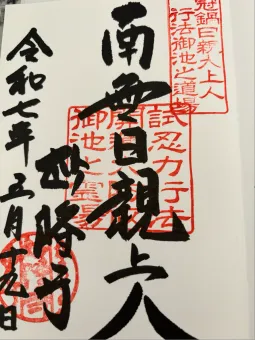 冠鍋日親大上人
行法御池之道場
南無日親上人
試忍力行法
御池之霊場
妙隆寺
令和七年五月十九日